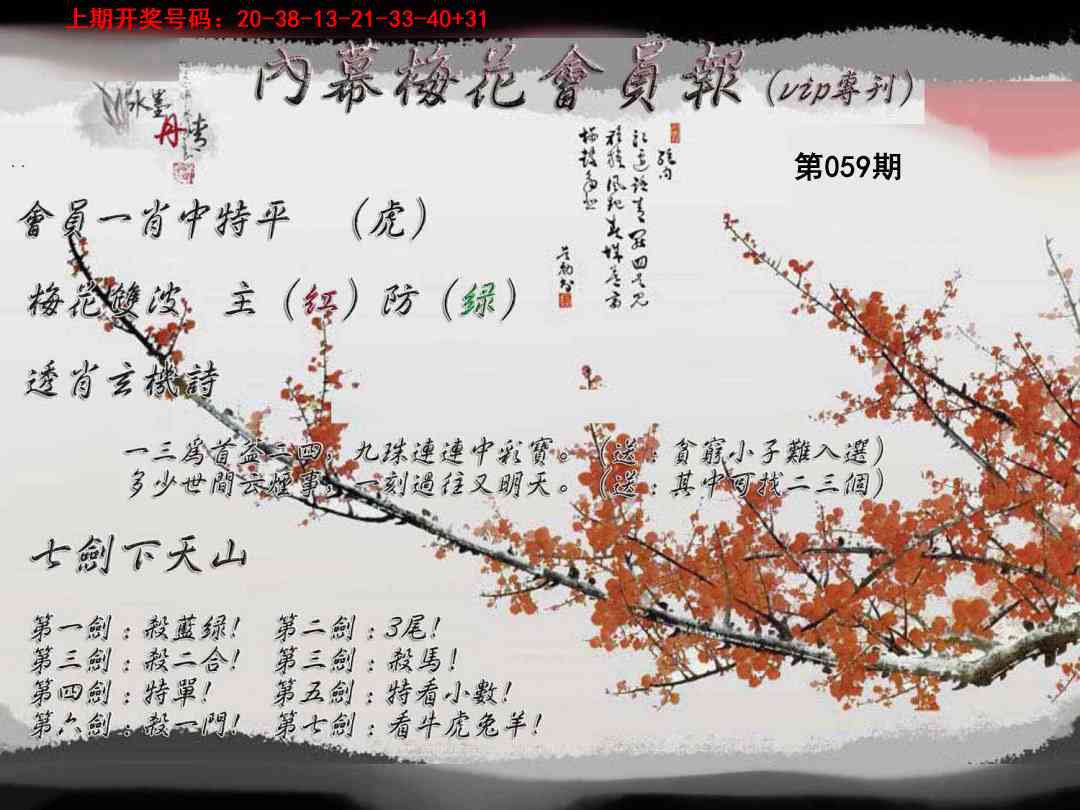 上期开奖号码：20-38-13-21-33-40+31
內幕梅花會員報（vip專刊）
水墨
丹青
第059期
會員一肖中特平　（虎）
梅花雙波　主（红）防（绿）
透肖玄機詩
一三爲首益二四，九珠連連中彩寶。（送：貧窮小子難入選）
多少世間云煙事，一刻過往又明天。（送：其中可找二三個）
七劍下天山
第一劍：殺藍绿！　第二劍：3尾！
第三劍：殺二合！　第三劍：殺馬！
第四劍：特單！　第五劍：特看小數！
第六劍：殺一門！　第七劍：看牛虎兔羊！